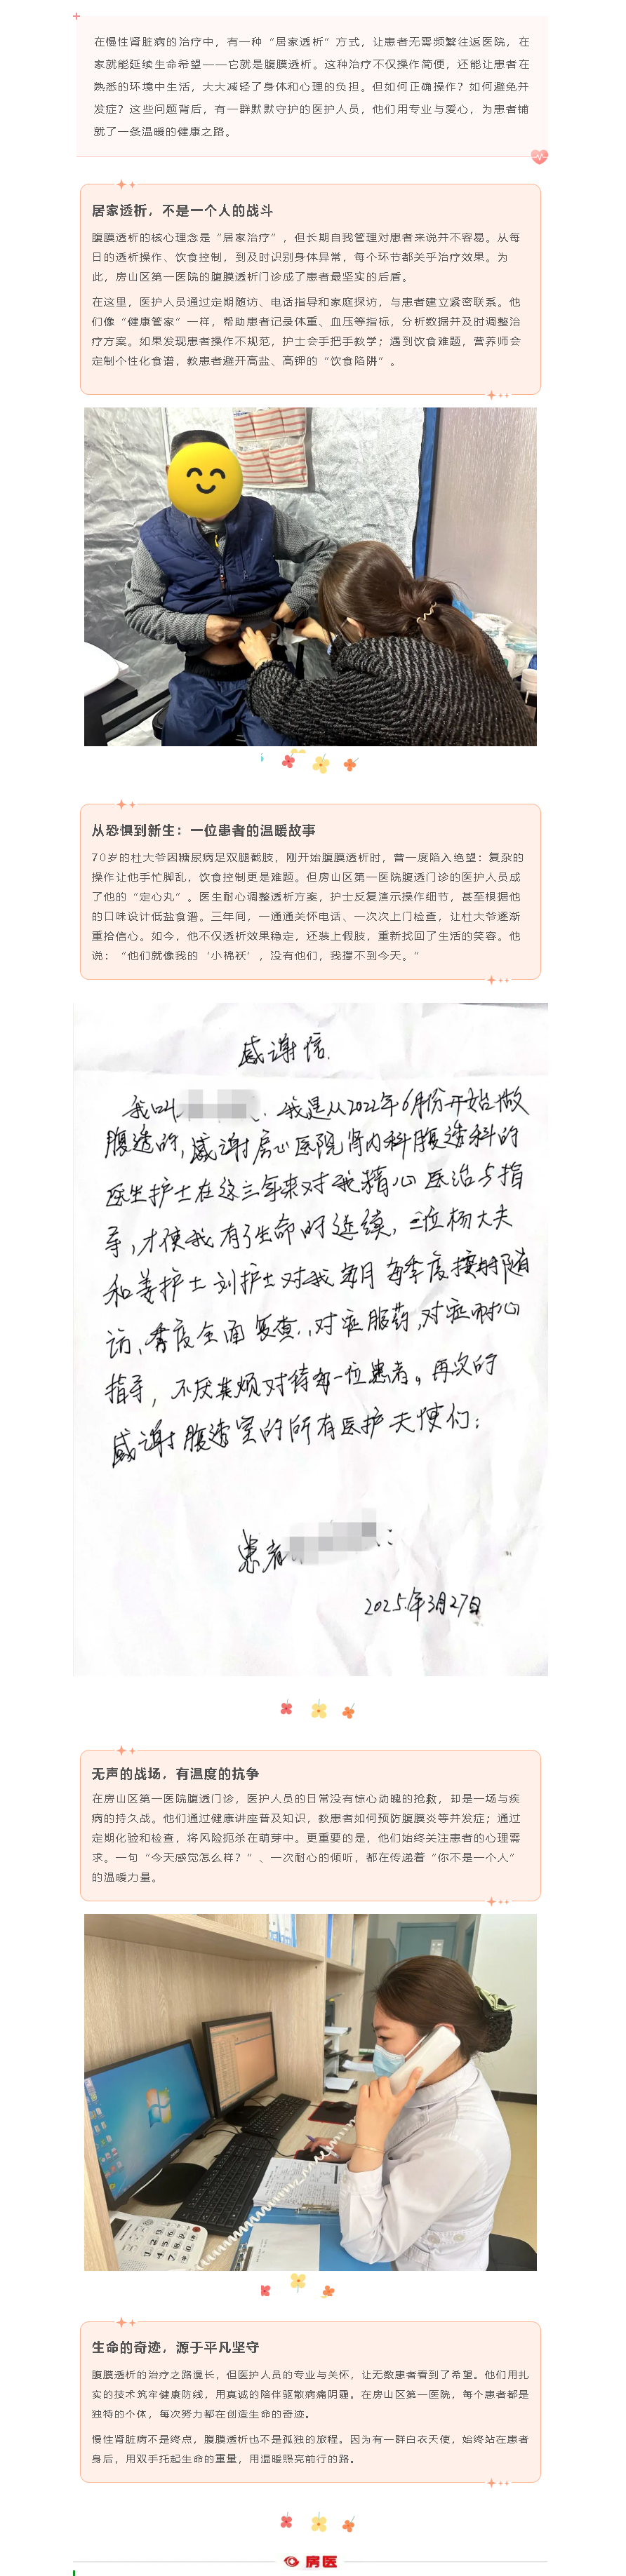 在慢性肾脏病的治疗中，有一种“居家透析”方式，让患者无需频繁往返医院，在
家就能延续生命希望——它就是腹膜透析。这种治疗不仅操作简便，还能让患者在
熟悉的环境中生活，大大减轻了身体和心理的负担。但如何正确操作？如何避免并
发症？这些问题背后，有一群默默守护的医护人员，他们用专业与爱心，为患者铺
就了一条温暖的健康之路。
居家透析，不是一个人的战斗
腹膜透析的核心理念是“居家治疗”，但长期自我管理对患者来说并不容易。从每
日的透析操作、饮食控制，到及时识别身体异常，每个环节都关乎治疗效果。为
此，房山区第一医院的腹膜透析门诊成了患者最坚实的后盾。
在这里，医护人员通过定期随访、电话指导和家庭探访，与患者建立紧密联系。他
们像“健康管家”一样，帮助患者记录体重、血压等指标，分析数据并及时调整治
疗方案。如果发现患者操作不规范，护士会手把手教学；遇到饮食难题，营养师会
定制个性化食谱，教患者避开高盐、高钾的“饮食陷阱”。
从恐惧到新生：一位患者的温暖故事
70岁的杜大爷因糖尿病足双腿截肢，刚开始腹膜透析时，曾一度陷入绝望：复杂的
操作让他手忙脚乱，饮食控制更是难题。但房山区第一医院腹透门诊的医护人员成
了他的“定心丸”。医生耐心调整透析方案，护士反复演示操作细节，甚至根据他
的口味设计低盐食谱。三年间，一通通关怀电话、一次次上门检查，让杜大爷逐渐
重拾信心。如今，他不仅透析效果稳定，还装上假肢，重新找回了生活的笑容。他
说：“他们就像我的‘小棉袄’，没有他们，我撑不到今天。”
感谢信.
我叫 我是从2022年6月份开始做
腹透的,感谢房山医院肾内科腹透科的
医生护士在这三年来对我精心医治与指
导,才使我有了生命的延续,三位杨大夫
和姜护士刘护士对我每月每季度按时随
访、季度全面复查,对症服药,对症耐心
指导,不厌其烦对待每一位患者。再次的
感谢腹透室的所有医护天使们:
患者
2025年3月27日
无声的战场，有温度的抗争
在房山区第一医院腹透门诊，医护人员的日常没有惊心动魄的抢救，却是一场与疾
病的持久战。他们通过健康讲座普及知识，教患者如何预防腹膜炎等并发症；通过
定期化验和检查，将风险扼杀在萌芽中。更重要的是，他们始终关注患者的心理需
求。一句“今天感觉怎么样？”、一次耐心的倾听，都在传递着“你不是一个人”
的温暖力量。
生命的奇迹，源于平凡坚守
腹膜透析的治疗之路漫长，但医护人员的专业与关怀，让无数患者看到了希望。他们用扎
实的技术筑牢健康防线，用真诚的陪伴驱散病痛阴霾。在房山区第一医院，每个患者都是
独特的个体，每次努力都在创造生命的奇迹。
慢性肾脏病不是终点，腹膜透析也不是孤独的旅程。因为有一群白衣天使，始终站在患者
身后，用双手托起生命的重量，用温暖照亮前行的路。
房医